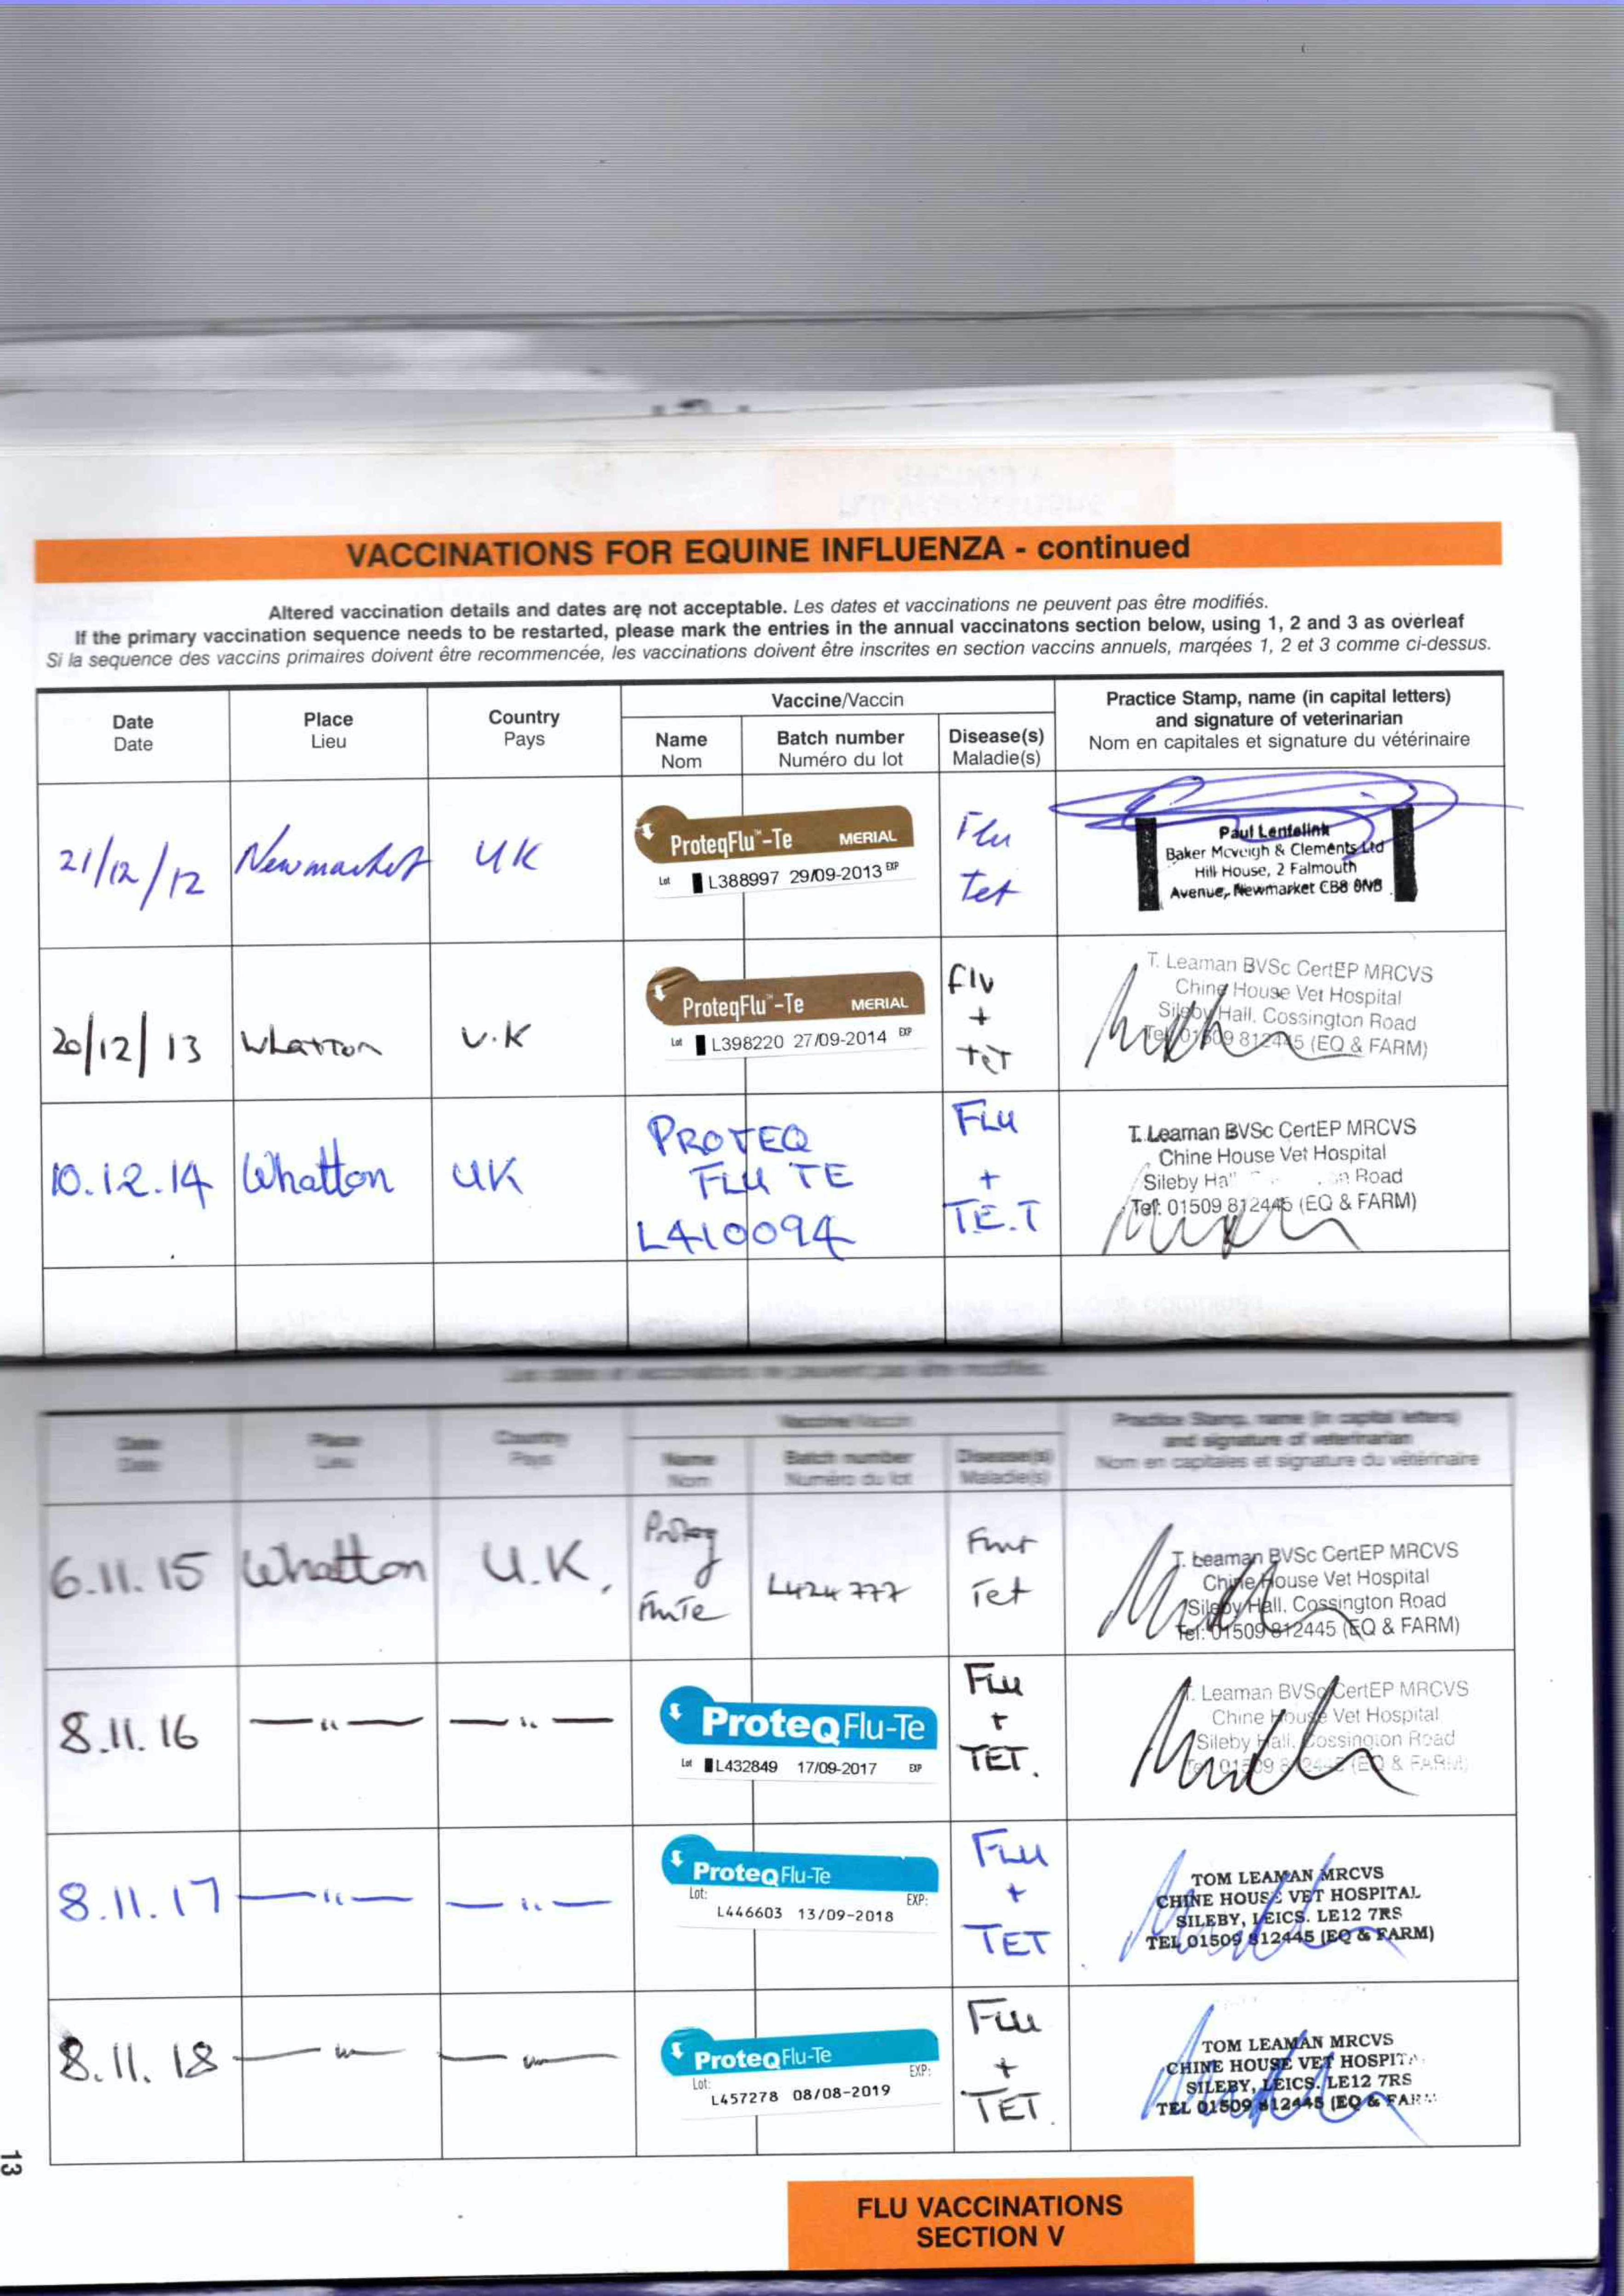 VACCINATIONS FOR EQUINE INFLUENZA - continued
Altered vaccination details and dates are not acceptable. Les dates et vaccinations ne peuvent pas être modifiés.
If the primary vaccination sequence needs to be restarted, please mark the entries in the annual vaccinatons section below, using 1, 2 and 3 as overleaf
Si la sequence des vaccins primaires doivent être recommencée, les vaccinations doivent être inscrites en section vaccins annuels, marqées 1, 2 et 3 comme ci-dessus.
Date
Date
Place
Lieu
Country
Pays
Vaccine/Vaccin
Name
Nom
Batch number
Numéro du lot
Disease(s)
Maladie(s)
Practice Stamp, name (in capital letters)
and signature of veterinarian
Nom en capitales et signature du vétérinaire
21/12/12
Newmarket
UK
ProteqFlu™-Te MERIAL
Lot L388997 29/09-2013 EXP
Flu
Tet
Paul Lentelink
Baker Mcveigh & Clements Ltd
Hill House, 2 Falmouth
Avenue, Newmarket CB8 0NB
20/12/13
Whatton
U.K
ProteqFlu™-Te MERIAL
Lot L398220 27/09-2014 EXP
Flu
+
TET
T. Leaman BVSc CertEP MRCVS
Chine House Vet Hospital
Sileby Hall, Cossington Road
Tel: 01509 812445 (EQ & FARM)
10.12.14
Whatton
UK
PROTEQ
FLU TE
L410094
FLU
+
T.E.T
T. Leaman BVSc CertEP MRCVS
Chine House Vet Hospital
Sileby Road
Tel: 01509 812445 (EQ & FARM)
Les dates et vaccinations ne peuvent pas être modifiés.
Date
Date
Place
Lieu
Country
Pays
Vaccine/Vaccin
Name
Nom
Batch number
Numéro du lot
Disease(s)
Maladie(s)
Practice Stamp, name (in capital letters)
and signature of veterinarian
Nom en capitales et signature du vétérinaire
6.11.15
Whatton
U.K.
Proteq
FluTe
L424777
Tet
T. Leaman BVSc CertEP MRCVS
Chine House Vet Hospital
Sileby Hall, Cossington Road
Tel: 01509 812445 (EQ & FARM)
8.11.16
—"—
—"—
ProteqFlu-Te
Lot L432849 17/09-2017 EXP
FLU
+
TET.
T. Leaman BVSc CertEP MRCVS
Chine House Vet Hospital
Sileby Hall, Cossington Road
Tel: 01509 812445 (EQ & FARM)
8.11.17
—"—
—"—
ProteqFlu-Te
Lot: EXP:
L446603 13/09-2018
FLU
+
TET
TOM LEAMAN MRCVS
CHINE HOUSE VET HOSPITAL
SILEBY, LEICS. LE12 7RS
TEL 01509 812445 (EQ & FARM)
8.11.18
—"—
—"—
ProteqFlu-Te
Lot: EXP:
L457278 08/08-2019
FLU
+
TET.
TOM LEAMAN MRCVS
CHINE HOUSE VET HOSPITA
SILEBY, LEICS. LE12 7RS
TEL 01509 812445 (EQ & FARM
13
FLU VACCINATIONS
SECTION V